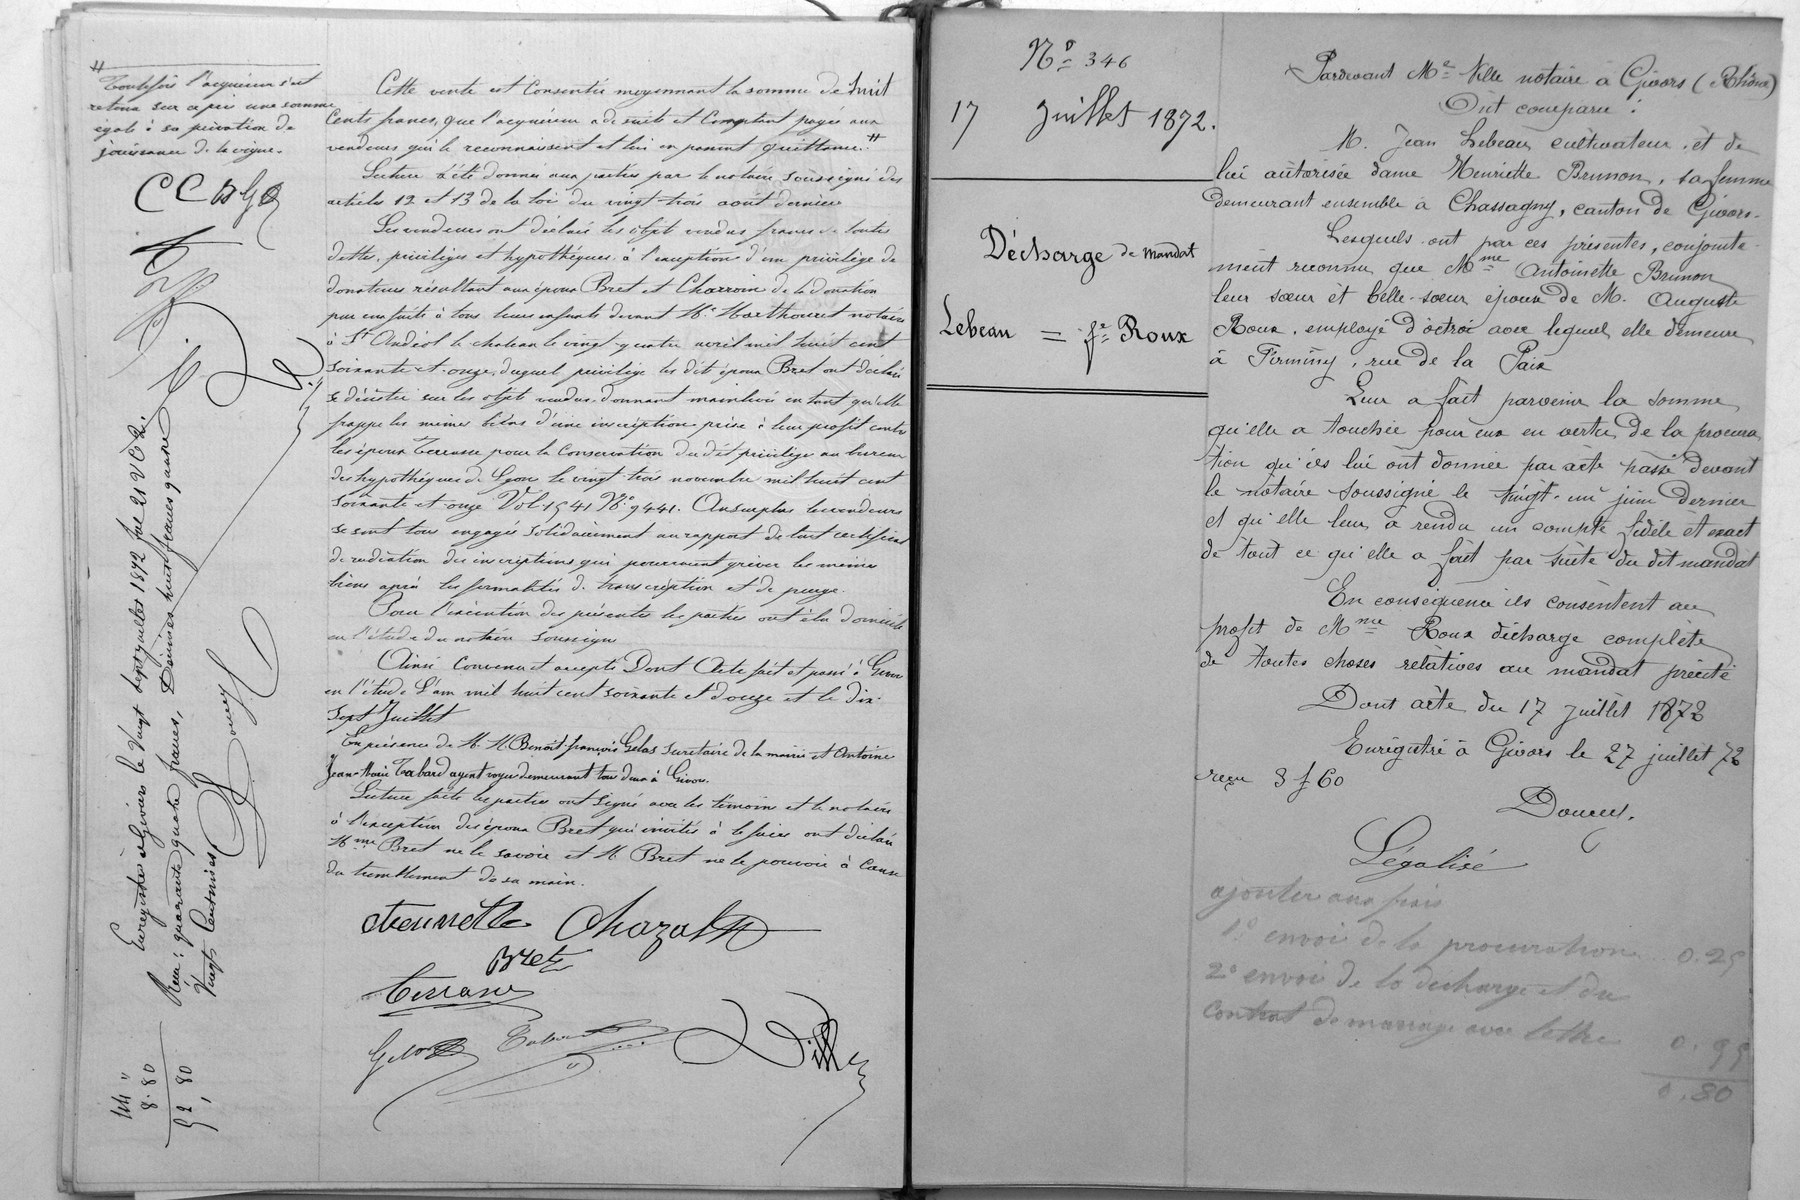 Toutefois l'acquéreur s'est
retenu sur ce prix une somme
égale à sa privation de
jouissance de la vigne.
C C B G
Enregistré à Givors le Vingt sept juillet 1872 fol 21 V C 2.
Reçu : quarante quatre francs, Décimes huit francs quatre
Vingt Centimes
Doucet
44 "
8.80
52,80
Cette vente est Consentie moyennant la somme de huit
Cents francs, que l'acquéreur a de suite et Comptant payée aux
vendeurs qui le reconnaissent et lui en passent quittance. #
Lecture a été donnée aux parties par le notaire soussigné des
articles 12 et 13 de la loi du vingt-trois août dernier
Les vendeurs ont déclaré les objets vendus francs de toutes
dettes, privilèges et hypothèques à l'exception d'un privilège de
donateurs résultant aux époux Bret et Charroin de la donation
par eux faite à tous leurs enfants devant Me Marthouret notaire
à St Andéol le chateau le vingt-quatre avril mil huit cent
soixante-et-onze, duquel privilège les dits époux Bret ont déclaré
se désister sur les objets vendus, donnant mainlevée en tant qu'elle
frappe les mêmes biens d'une inscription prise à leur profit contre
les époux Terrasse pour la Conservation du dit privilège au bureau
des hypothèques de Lyon le vingt trois novembre mil huit cent
soixante et onze Vol. 1541 No 9441. Au surplus les vendeurs
se sont tous engagés solidairement au rapport de tout certificat
de radiation des inscriptions qui pourraient grever les mêmes
biens après les formalités de transcription et de purge.
Pour l'exécution des présentes les parties ont élu domicile
en l'étude du notaire soussigné
Ainsi Convenu et accepté Dont Acte fait et passé à Givors
en l'étude L'an mil huit cent soixante et douze et le dix-
sept Juillet
En présence de M. M. Benoît-françois Gelas secrétaire de la mairie et Antoine
Jean-Marie Tabard agent voyer demeurant tous deux à Givors.
Lecture faite les parties ont signé avec les témoins et le notaire
à l'exception des époux Bret qui invités à le faire ont déclaré
Mme Bret ne le savoir et M Bret ne le pouvoir à cause
du tremblement de sa main.
Bret
Terrasse
Gelas Tabard Ville
No 346
17 Juillet 1872.
Décharge de Mandat
Lebeau = fe Roux
Pardevant Me Ville notaire à Givors (Rhône)
Ont comparu :
M. Jean Lebeau cultivateur et de
lui autorisée dame Henriette Brunon, sa femme
demeurant ensemble à Chassagny, canton de Givors.
Lesquels ont par ces présentes, conjointe-
ment reconnu que Mme Antoinette Brunon
leur sœur et belle-sœur, épouse de M. Auguste
Roux, employé d'octroi avec lequel elle demeure
à Firminy, rue de la Paix
Leur a fait parvenir la somme
qu'elle a touchée pour eux en vertu de la procura
tion qu'ils lui ont donnée par acte passé devant
le notaire soussigné le vingt-un juin dernier
et qu'elle leur a rendu un compte fidèle et exact
de tout ce qu'elle a fait par suite du dit mandat
En conséquence ils consentent au
profit de Mme Roux décharge complète
de toutes choses relatives au mandat précité
Dont acte du 17 juillet 1872
Enregistré à Givors le 27 juillet 72
reçu 3 f 60
Doucet.
Légalisé
ajouter aux frais
1o envoi de la procuration 0.25
2o envoi de la décharge et du
Contrat de mariage avec lettre
0.55
0.80